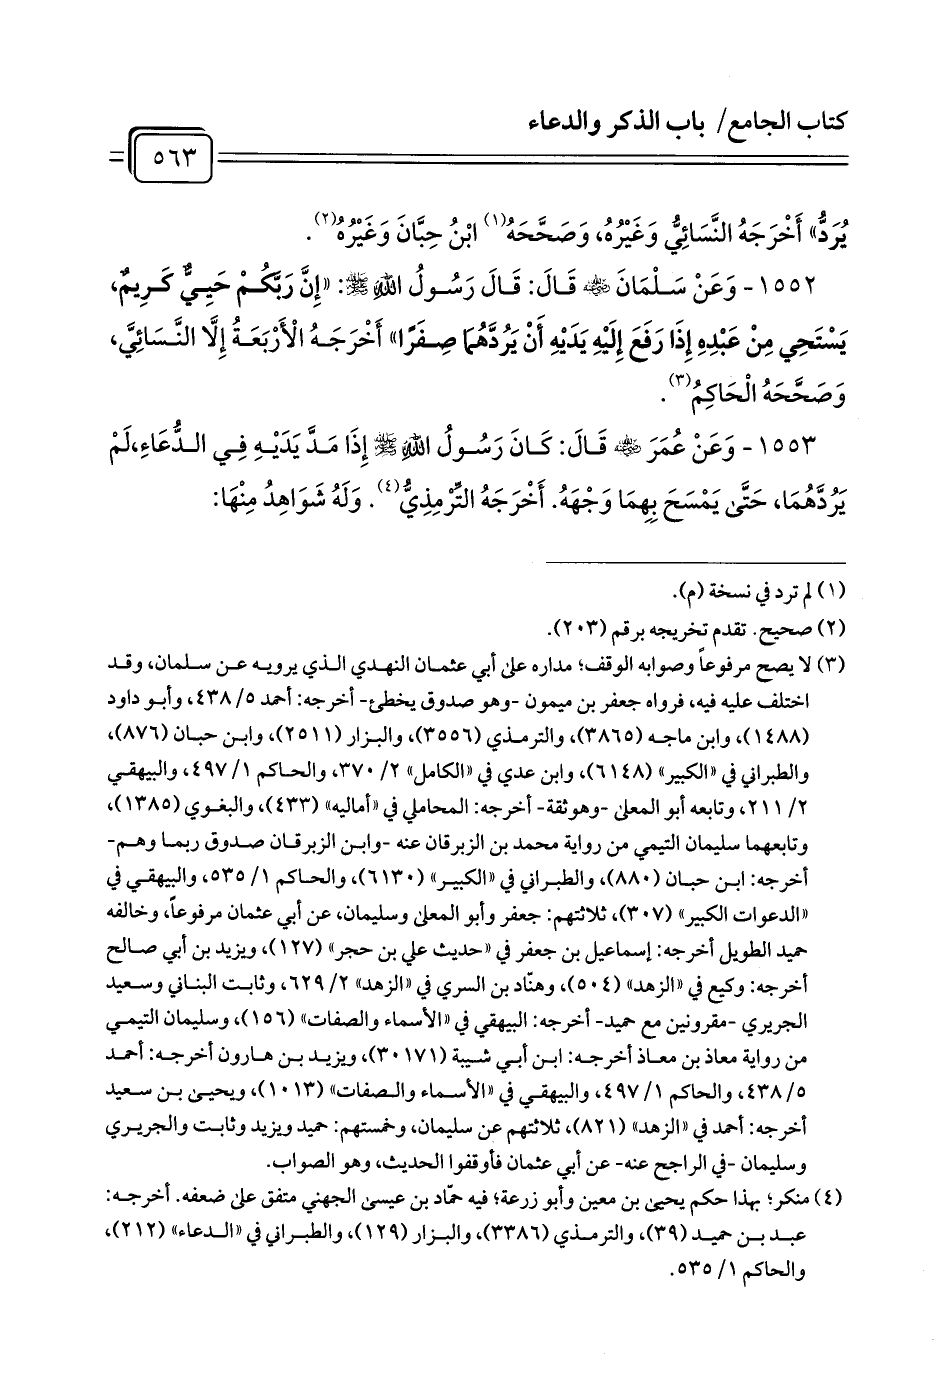 كتاب الجامع/ باب الذكر والدعاء
٥٦٣
يُرَدُّ» أَخْرَجَهُ النَّسَائِيُّ وَغَيْرُهُ، وَصَحَّحَهُ(١) ابْنُ حِبَّانَ وَغَيْرُهُ(٢).
١٥٥٢ - وَعَنْ سَلْمَانَ ﵁ قَالَ: قَالَ رَسُولُ اللهِ ﷺ: «إِنَّ رَبَّكُمْ حَيِيٌّ كَرِيمٌ،
يَسْتَحِي مِنْ عَبْدِهِ إِذَا رَفَعَ إِلَيْهِ يَدَيْهِ أَنْ يَرُدَّهُمَا صِفْرًا» أَخْرَجَهُ الْأَرْبَعَةُ إِلَّا النَّسَائِيَّ،
وَصَحَّحَهُ الْحَاكِمُ(٣).
١٥٥٣ - وَعَنْ عُمَرَ ﵁ قَالَ: كَانَ رَسُولُ اللهِ ﷺ إِذَا مَدَّ يَدَيْهِ فِي الدُّعَاءِ،لَمْ
يَرُدَّهُمَا، حَتَّى يَمْسَحَ بِهِمَا وَجْهَهُ. أَخْرَجَهُ التِّرْمِذِيُّ(٤). وَلَهُ شَوَاهِدُ مِنْهَا:
(١) لم ترد في نسخة (م).
(٢) صحيح. تقدم تخريجه برقم (٢٠٣).
(٣) لا يصح مرفوعاً وصوابه الوقف؛ مداره على أبي عثمان النهدي الذي يرويه عن سلمان، وقد
اختلف عليه فيه، فرواه جعفر بن ميمون -وهو صدوق يخطئ- أخرجه: أحمد ٥/ ٤٣٨، وأبو داود
(١٤٨٨)، وابن ماجه (٣٨٦٥)، والترمذي (٣٥٥٦)، والبزار (٢٥١١)، وابن حبان (٨٧٦)،
والطبراني في «الكبير» (٦١٤٨)، وابن عدي في «الكامل» ٢/ ٣٧٠، والحاكم ١/ ٤٩٧، والبيهقي
٢/ ٢١١، وتابعه أبو المعلى -وهو ثقة- أخرجه: المحاملي في «أماليه» (٤٣٣)، والبغوي (١٣٨٥)،
وتابعهما سليمان التيمي من رواية محمد بن الزبرقان عنه -وابن الزبرقان صدوق ربما وهم-
أخرجه: ابن حبان (٨٨٠)، والطبراني في «الكبير» (٦١٣٠)، والحاكم ١/ ٥٣٥، والبيهقي في
«الدعوات الكبير» (٣٠٧)، ثلاثتهم: جعفر وأبو المعلى وسليمان، عن أبي عثمان مرفوعاً، وخالفه
حميد الطويل أخرجه: إسماعيل بن جعفر في «حديث علي بن حجر» (١٢٧)، ويزيد بن أبي صالح
أخرجه: وكيع في «الزهد» (٥٠٤)، وهنّاد بن السري في «الزهد» ٢/ ٦٢٩، وثابت البناني وسعيد
الجريري -مقرونين مع حميد- أخرجه: البيهقي في «الأسماء والصفات» (١٥٦)، وسليمان التيمي
من رواية معاذ بن معاذ أخرجه: ابن أبي شيبة (٣٠١٧١)، ويزيد بن هارون أخرجه: أحمد
٥/ ٤٣٨، والحاكم ١/ ٤٩٧، والبيهقي في «الأسماء والصفات» (١٠١٣)، ويحيى بن سعيد
أخرجه: أحمد في «الزهد» (٨٢١)، ثلاثتهم عن سليمان، وخمستهم: حميد ويزيد وثابت والجريري
وسليمان -في الراجح عنه- عن أبي عثمان فأوقفوا الحديث، وهو الصواب.
(٤) منكر؛ بهذا حكم يحيى بن معين وأبو زرعة؛ فيه حمّاد بن عيسى الجهني متفق على ضعفه. أخرجه:
عبد بن حميد (٣٩)، والترمذي (٣٣٨٦)، والبزار (١٢٩)، والطبراني في «الدعاء» (٢١٢)،
والحاكم ١/ ٥٣٥.